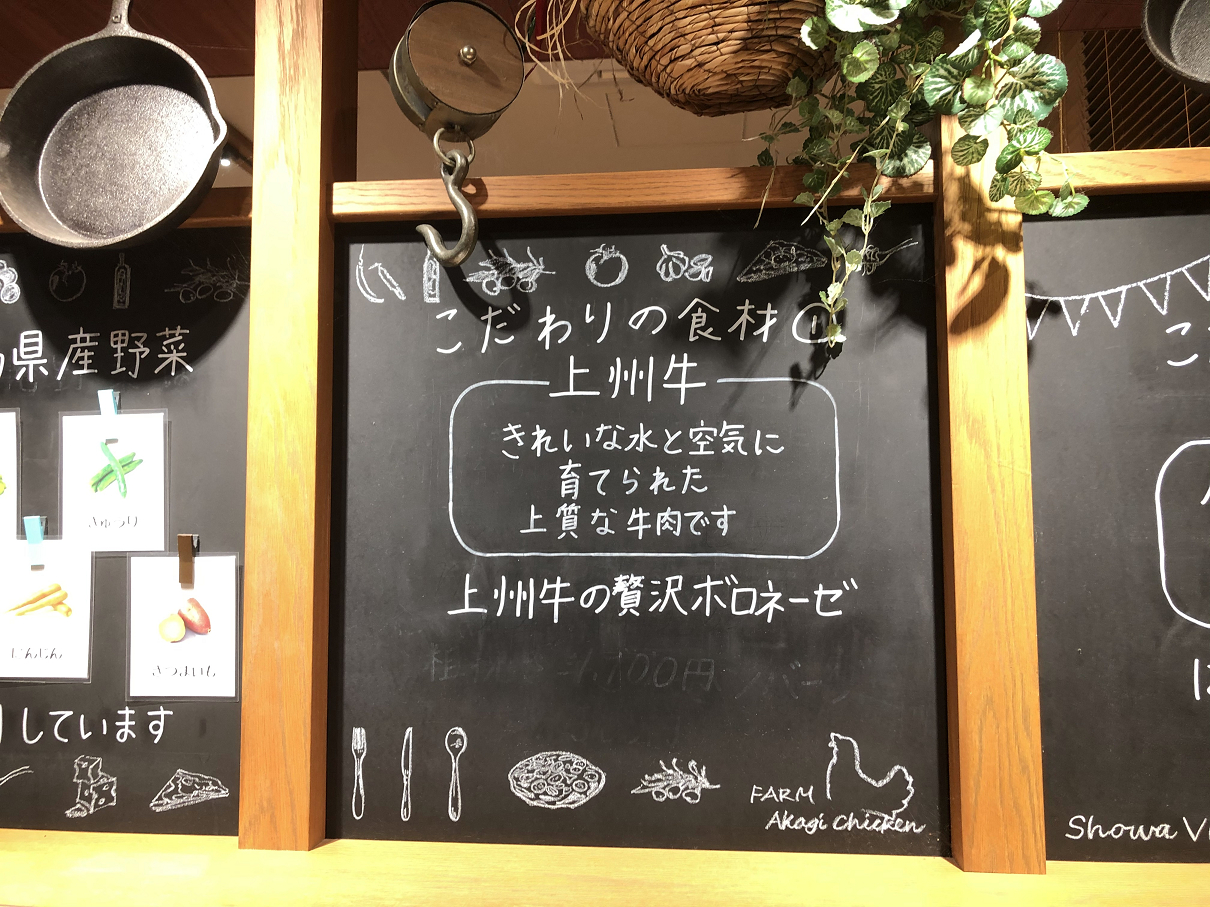 県産野菜
きゅうり
にんじん
さつまいも
しています
こだわりの食材①
上州牛
きれいな水と空気に
育てられた
上質な牛肉です
上州牛の贅沢ボロネーゼ
FARM
Akagi Chicken
こ
Showa